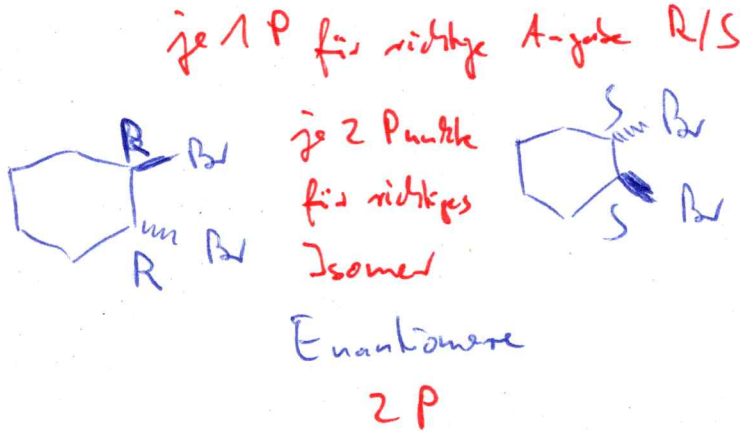 je 1 P für richtige Angabe R/S
R Br
Br
R
je 2 Punkte
für richtiges
Isomer
S Br
Br
S
Enantiomere
2 P